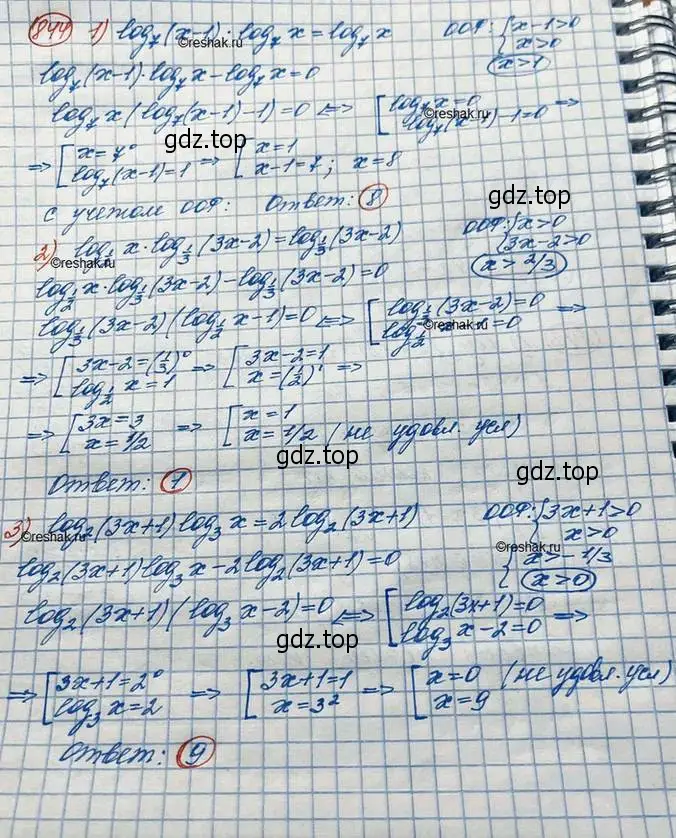 844 1) log₇(x-1)·log₇x=log₇x ООФ: { x-1>0
x>0
x>1
©reshak.ru
log₇(x-1)·log₇x-log₇x=0
log₇x(log₇(x-1)-1)=0 <=> [ log₇x=0
log₇(x-1)-1=0 =>
gdz.top
=> [ x=7⁰
log₇(x-1)=1 => [ x=1
x-1=7; x=8
с учетом ООФ: Ответ: 8
gdz.top
2) log_{1/2} x·log_{1/3}(3x-2)=log_{1/3}(3x-2) ООФ: { x>0
3x-2>0
x>2/3
©reshak.ru
log_{1/2} x·log_{1/3}(3x-2)-log_{1/3}(3x-2)=0
log_{1/3}(3x-2)(log_{1/2} x-1)=0 <=> [ log_{1/3}(3x-2)=0
log_{1/2} x-1=0 =>
©reshak.ru
=> [ 3x-2=(1/3)⁰
log_{1/2} x=1 => [ 3x-2=1
x=(1/2)¹ =>
=> [ 3x=3
x=1/2 => [ x=1
x=1/2 (не удовл. усл)
gdz.top
gdz.top
Ответ: 1
3) log₂(3x+1)log₃x=2log₂(3x+1) ООФ: { 3x+1>0
x>0
©reshak.ru
{ x>-1/3
x>0
©reshak.ru
log₂(3x+1)log₃x-2log₂(3x+1)=0
log₂(3x+1)(log₃x-2)=0 <=> [ log₂(3x+1)=0
log₃x-2=0 =>
gdz.top
=> [ 3x+1=2⁰
log₃x=2 => [ 3x+1=1
x=3² => [ x=0 (не удовл. усл)
x=9
gdz.top
Ответ: 9
©reshak.ru